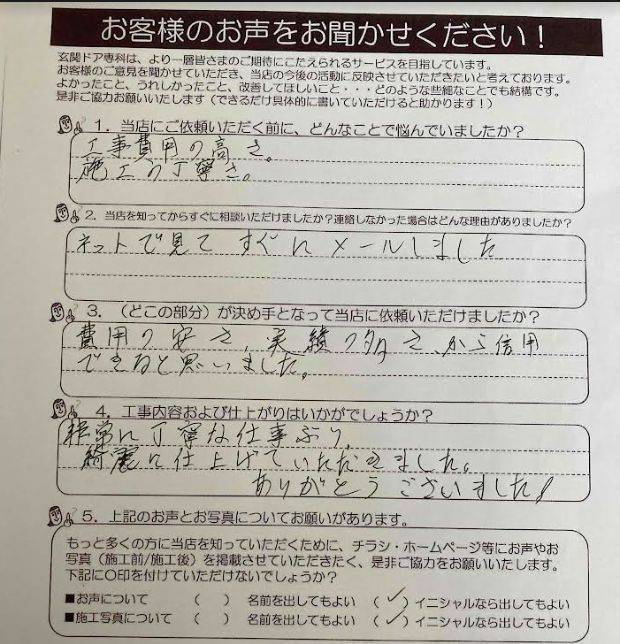 お客様のお声をお聞かせください！
玄関ドア専科は、より一層皆さまのご期待にこたえられるサービスを目指しています。
お客様のご意見を聞かせていただき、当店の今後の活動に反映させていただきたいと考えております。
よかったこと、うれしかったこと、改善してほしいこと・・・どのような些細なことでも結構です。
是非ご協力お願いいたします（できるだけ具体的に書いていただけると助かります！）
1．当店にご依頼いただく前に、どんなことで悩んでいましたか？
工事費用の高さ。
施工の丁寧さ。
2．当店を知ってからすぐに相談いただけましたか？連絡しなかった場合はどんな理由がありましたか？
ネットで見てすぐにメールしました
3．（どこの部分）が決め手となって当店に依頼いただけましたか？
費用の安さ、実績の多さ、から信用
できると思いました。
4．工事内容および仕上がりはいかがでしょうか？
非常に丁寧な仕事ぶり、
綺麗に仕上げていただきました。
ありがとうございました！
5．上記のお声とお写真についてお願いがあります。
もっと多くの方に当店を知っていただくために、チラシ・ホームページ等にお声やお
写真（施工前/施工後）を掲載させていただきたく、是非ご協力をお願いいたします。
下記に〇印を付けていただけないでしょうか？
■お声について （ ） 名前を出してもよい （✓）イニシャルなら出してもよい
■施工写真について （ ） 名前を出してもよい （✓）イニシャルなら出してもよい